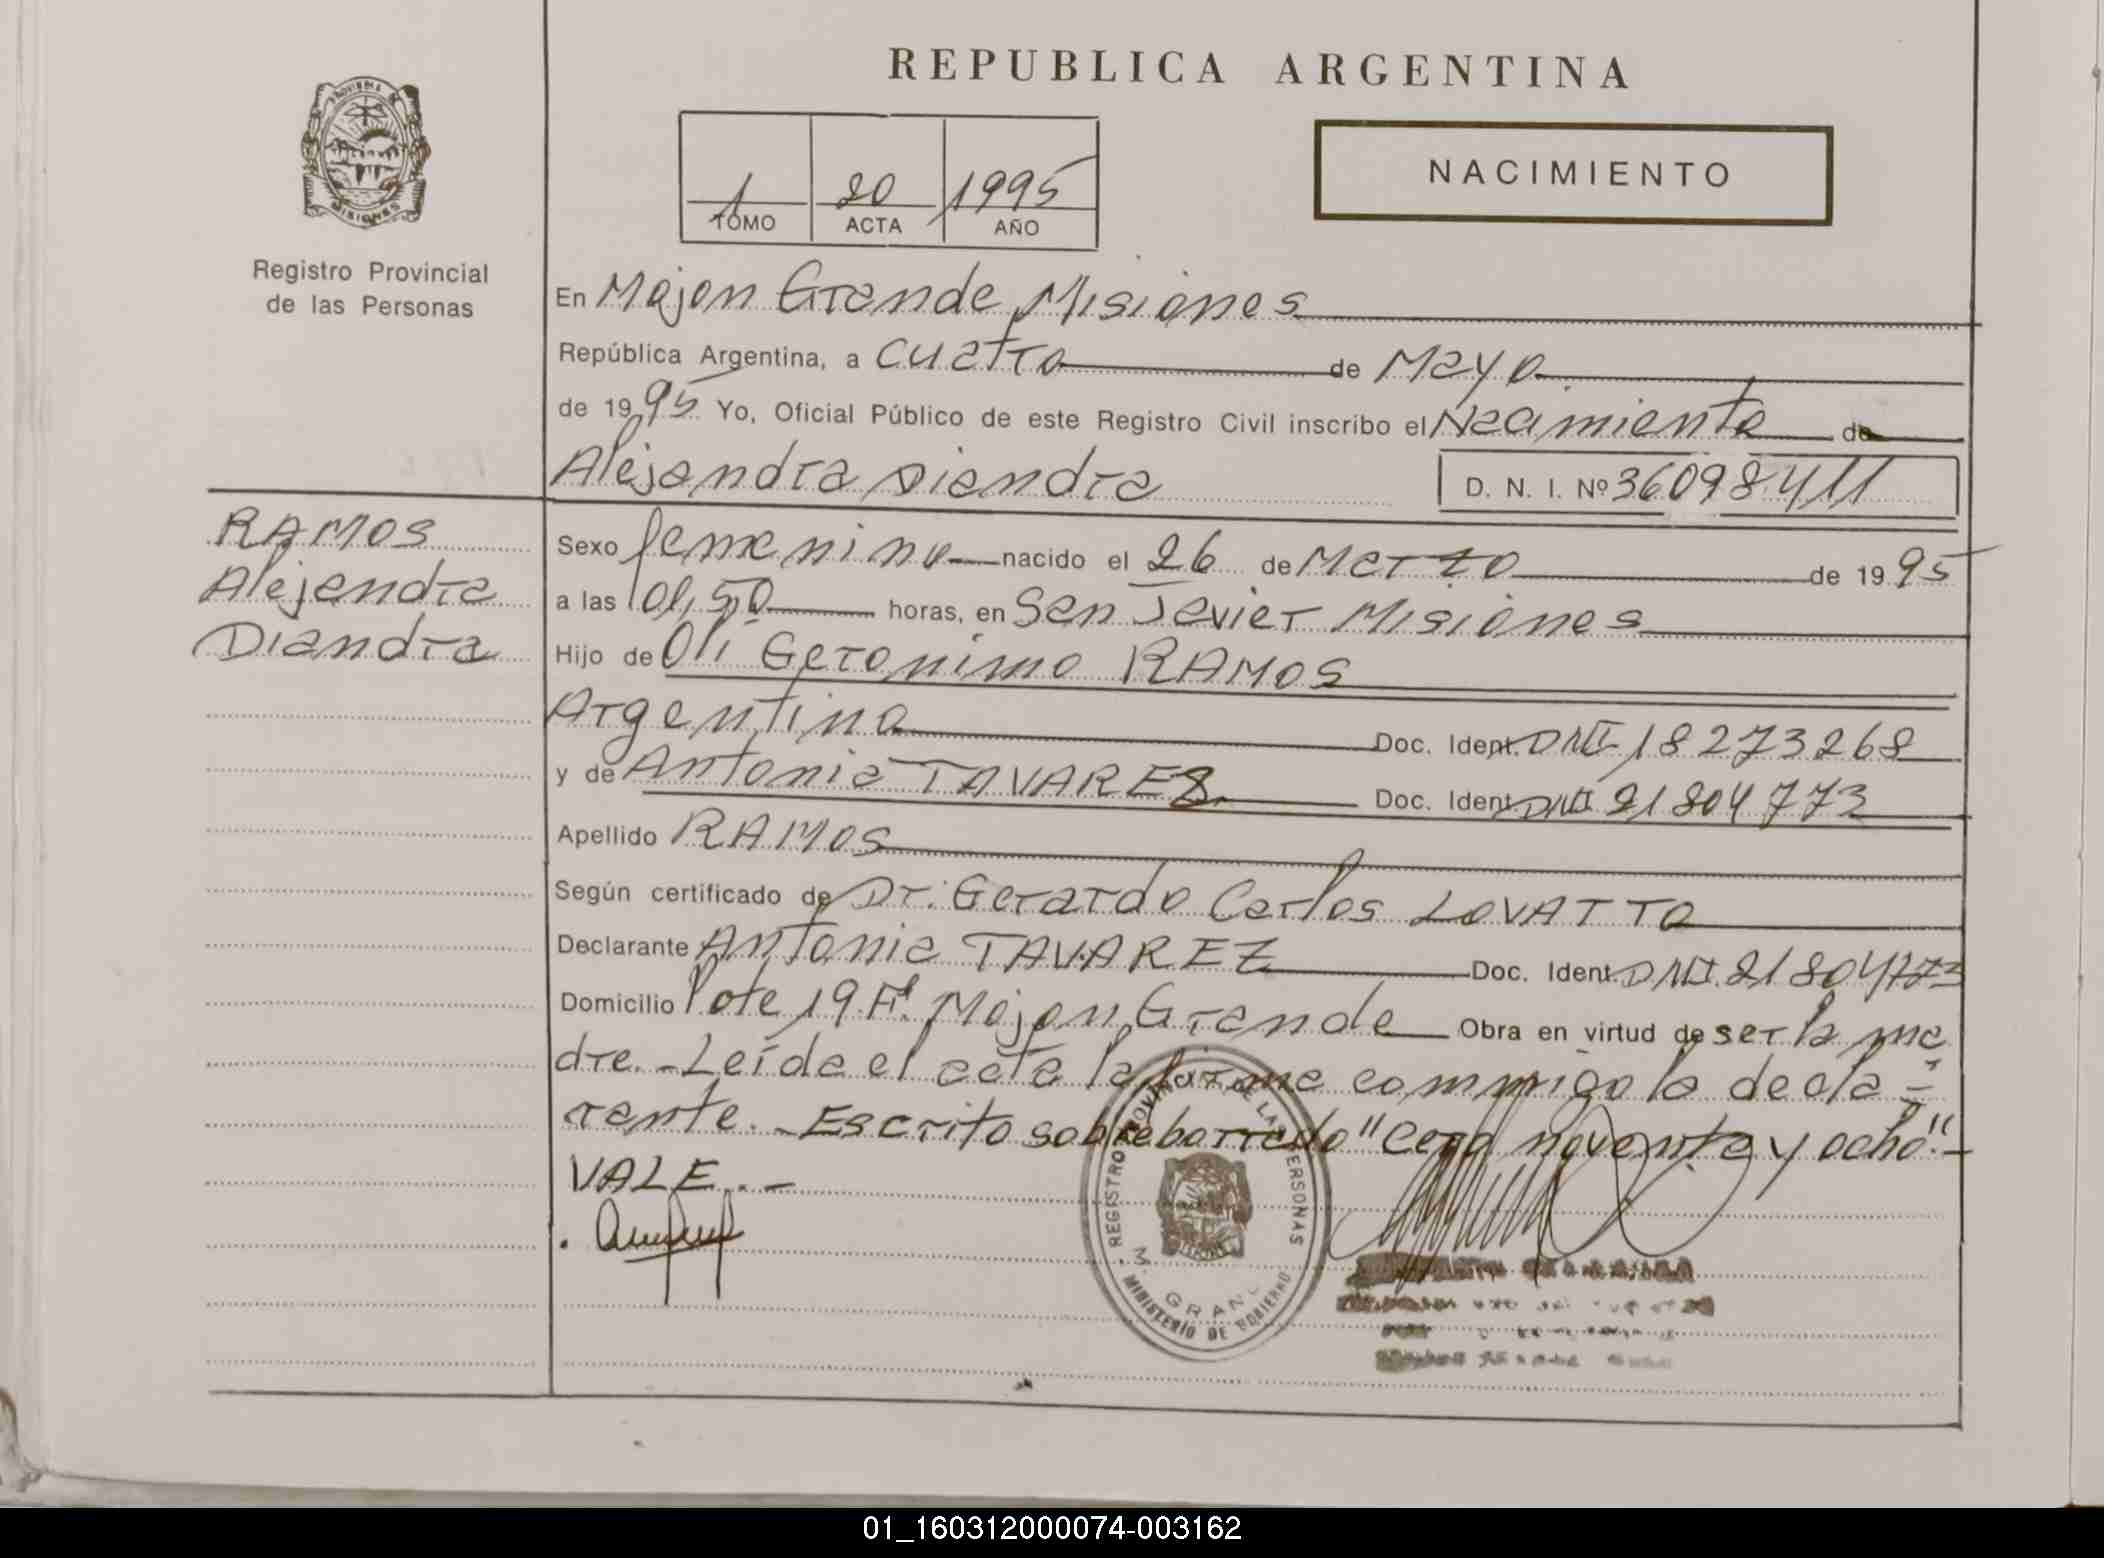 REPUBLICA ARGENTINA
PROVINCIA DE
MISIONES
Registro Provincial
de las Personas
1 20 1995
TOMO ACTA AÑO
NACIMIENTO
En Mojon Grande Misiones
República Argentina, a cuatro de Mayo
de 1995 Yo, Oficial Público de este Registro Civil inscribo el Nacimiento de
Alejandra Diandra D. N. I. Nº 36098411
RAMOS
Alejandra
Diandra
Sexo femenino nacido el 26 de Marzo de 1995
a las 01,50 horas, en San Javier Misiones
Hijo de Oli Geronimo RAMOS
Argentino Doc. Ident. DNI 18273268
y de Antonia TAVAREZ Doc. Ident. DNI 21804773
Apellido RAMOS
Según certificado de Dr. Gerardo Carlos LOVATTO
Declarante Antonia TAVAREZ Doc. Ident. DNI. 21804773
Domicilio lote 19.Fl. Mojon Grande Obra en virtud de ser la ma
dre.-Leida el acta la firma commigo la decla-
rante.-Escrito sobreborrado "cero noventa y ocho".-
VALE.-
REGISTRO PROVINCIAL DE LAS PERSONAS
M. GRANDE
MINISTERIO DE GOBIERNO
01_160312000074-003162